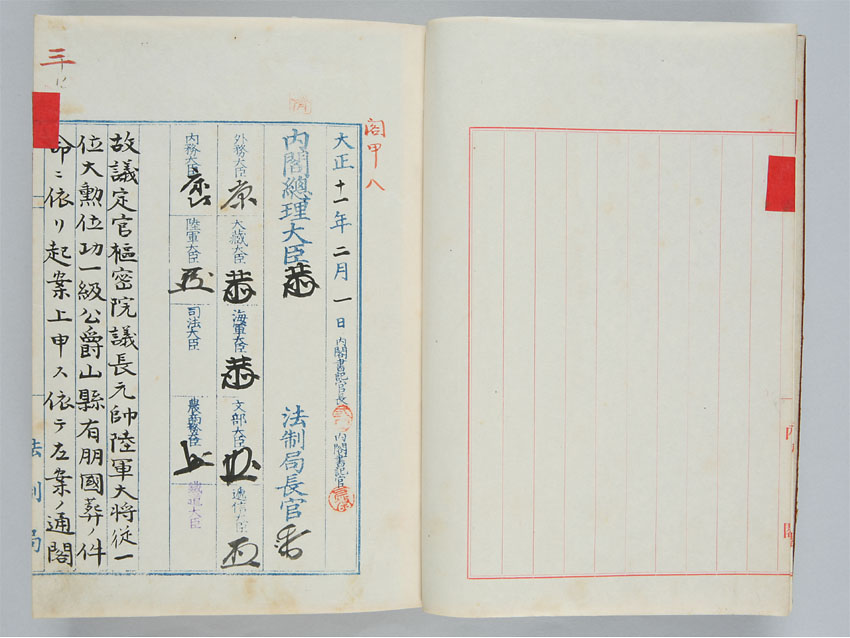 閣甲八
大正十一年二月一日
内閣書記官長
内閣書記官
内閣總理大臣
法制局長官
外務大臣
大藏大臣
海軍大臣
文部大臣
遞信大臣
内務大臣
陸軍大臣
司法大臣
農商務大臣
鐵道大臣
故議定官樞密院議長元帥陸軍大將從一
位大勲位功一級公爵山縣有朋國葬ノ件
命ニ依リ起案上申ス依テ左案ノ通閣
三十
法制局
内閣